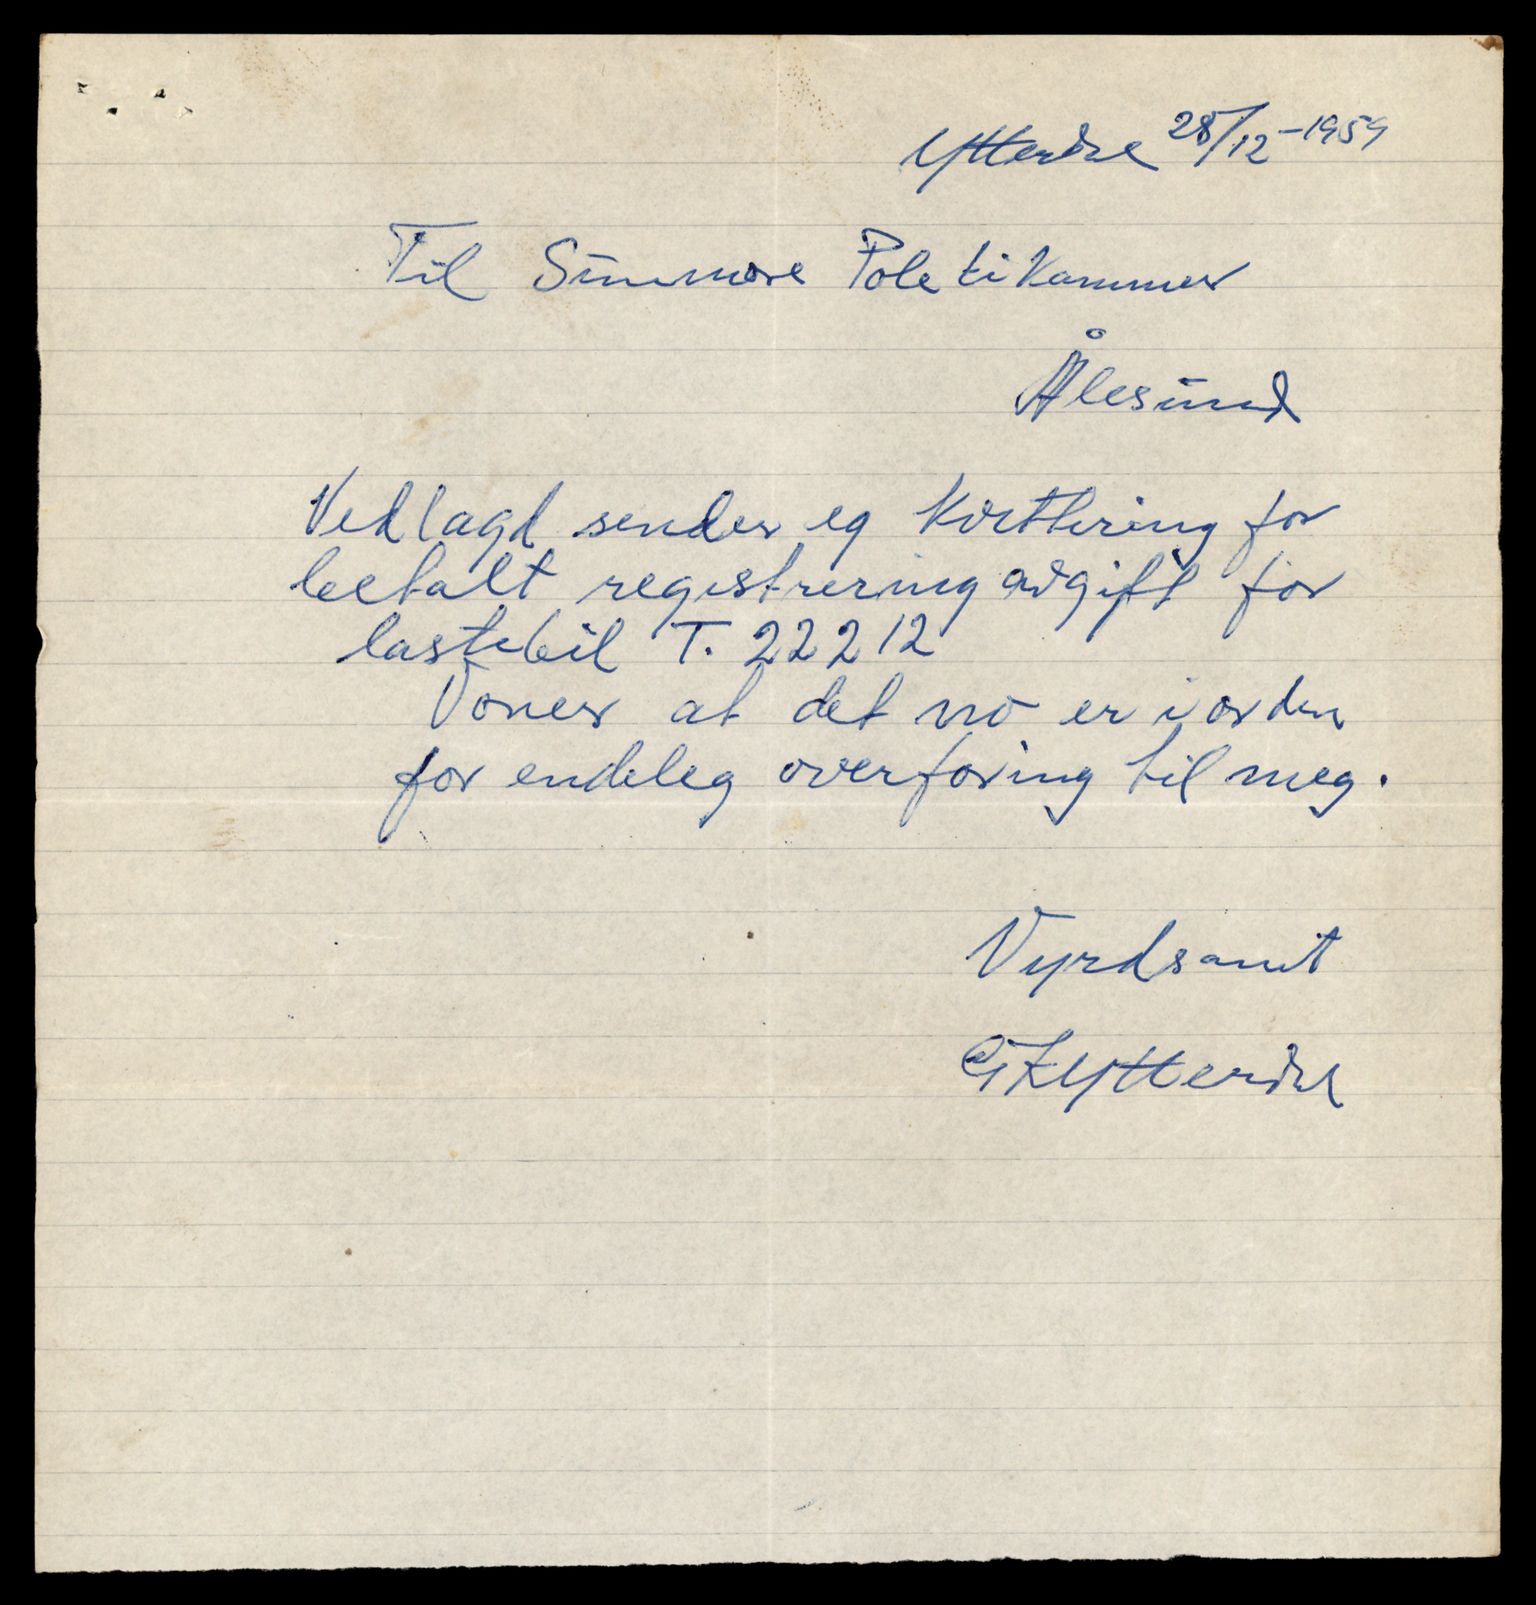 Ytterdal 28/12-1959
Til Sunmøre Poletikammer
Ålesund
Vedlagd sender eg kvittering for
betalt registrering avgift for
lastebil T. 22212
Voner at det no er i orden
for endeleg overføring til meg.
Vyrdsamt
Ytterdal